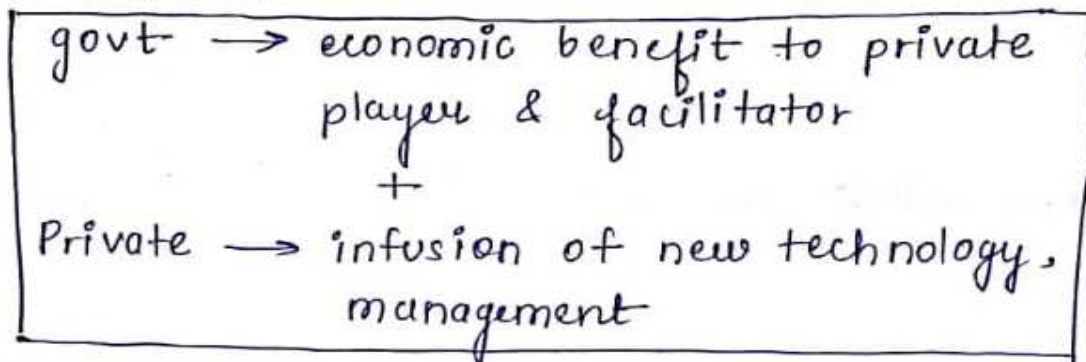 govt → economic benefit to private
player & facilitator
+
Private → infusion of new technology,
management